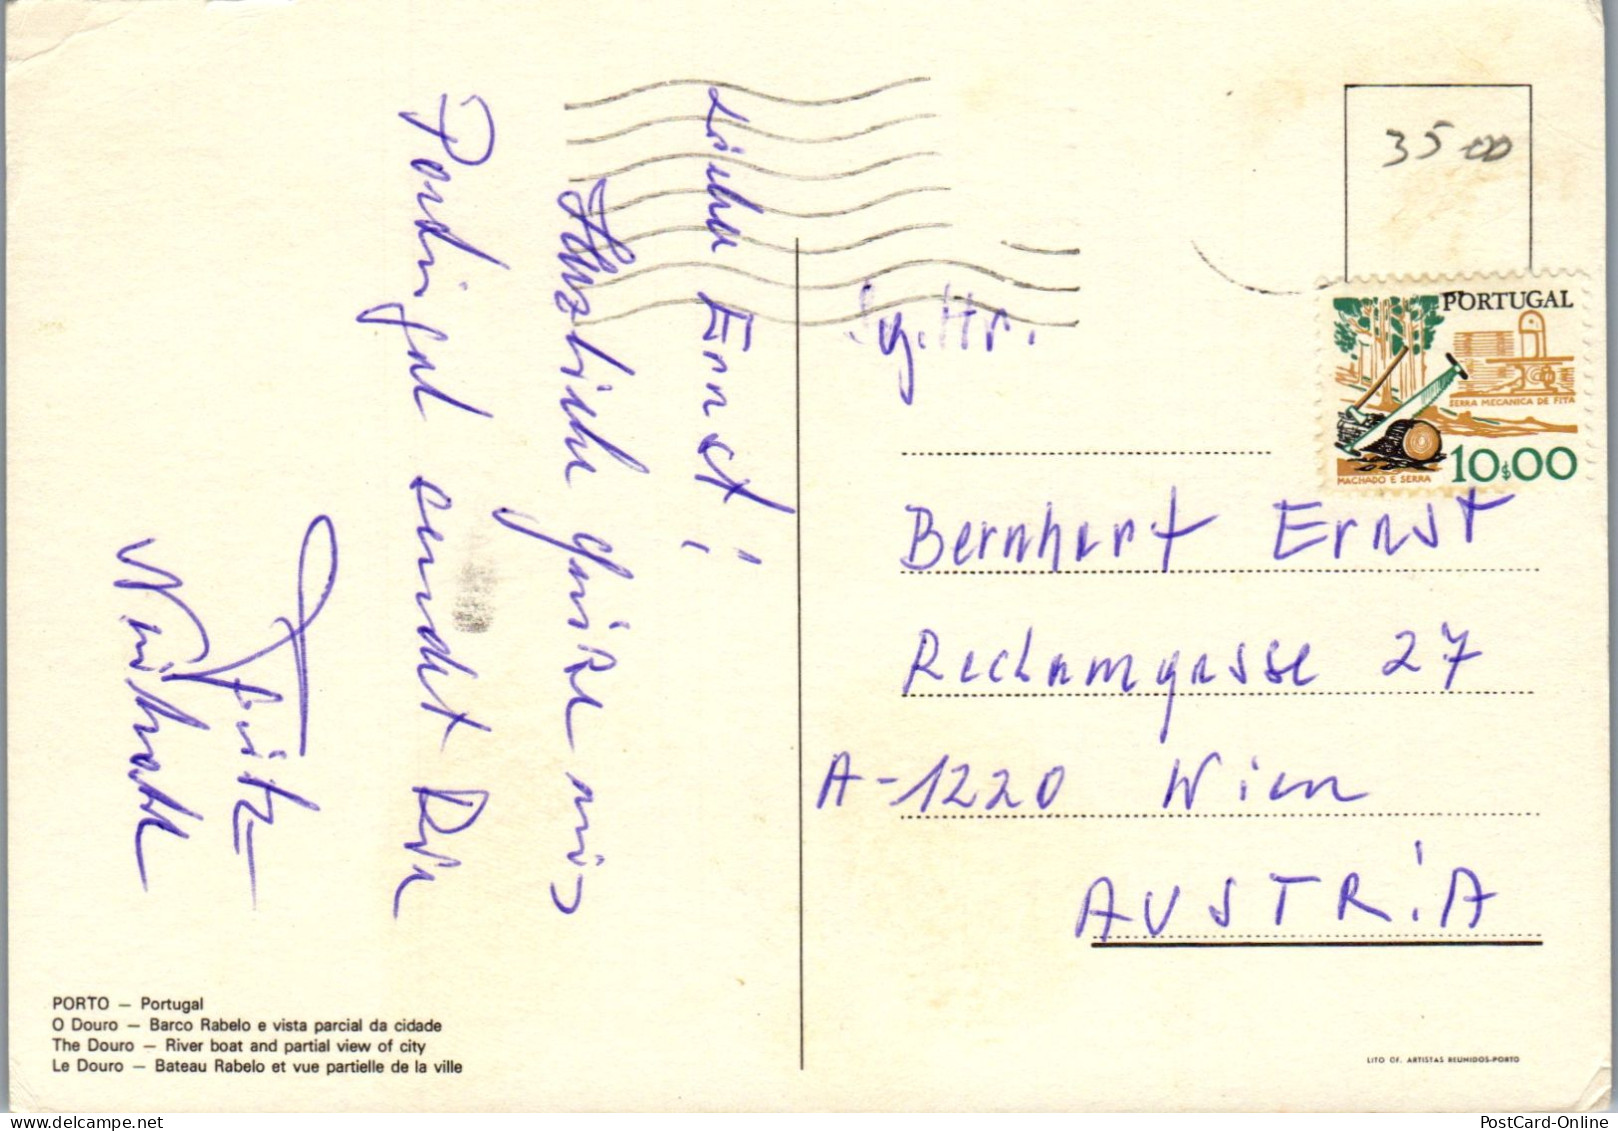 Ernst!
Herzliche Grüße aus
Portugal sendet Dir
Fritz
35-00
PORTUGAL
SERRA MECANICA DE FITA
MACHADO E SERRA
10$00
Sg. Hr.
Bernhart Ernst
Reclamgasse 27
A-1220 Wien
AUSTRiA
PORTO — Portugal
O Douro — Barco Rabelo e vista parcial da cidade
The Douro — River boat and partial view of city
Le Douro — Bateau Rabelo et vue partielle de la ville
LITO OF. ARTISTAS REUNIDOS-PORTO
PostCard-Online